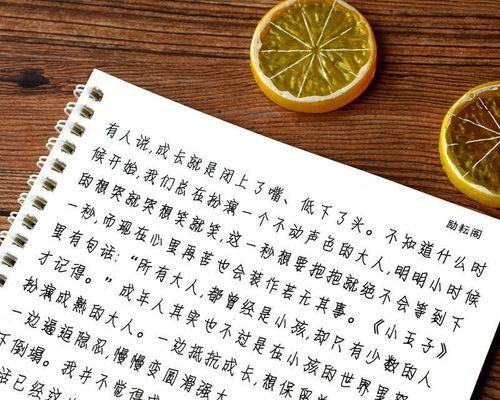 有人说,成长就是闭上了嘴、低下了头。不知道什么时
候开始,我们总在扮演一个不动声色的大人,明明小时候
的想哭就哭想笑就笑,这一秒想要抱抱就绝不会等到下
一秒,而现在心里再苦也会装作若无其事。《小王子》
里有句话:“所有大人,都曾经是小孩,却只有少数的人
才记得。”成年人其实也不过是在小孩的世界里
扮演成熟的大人。一边抵抗成长,想保留
一边逼迫隐忍,慢慢变圆滑强大
下倒塌。我并不觉得成
活已经
励耘阁